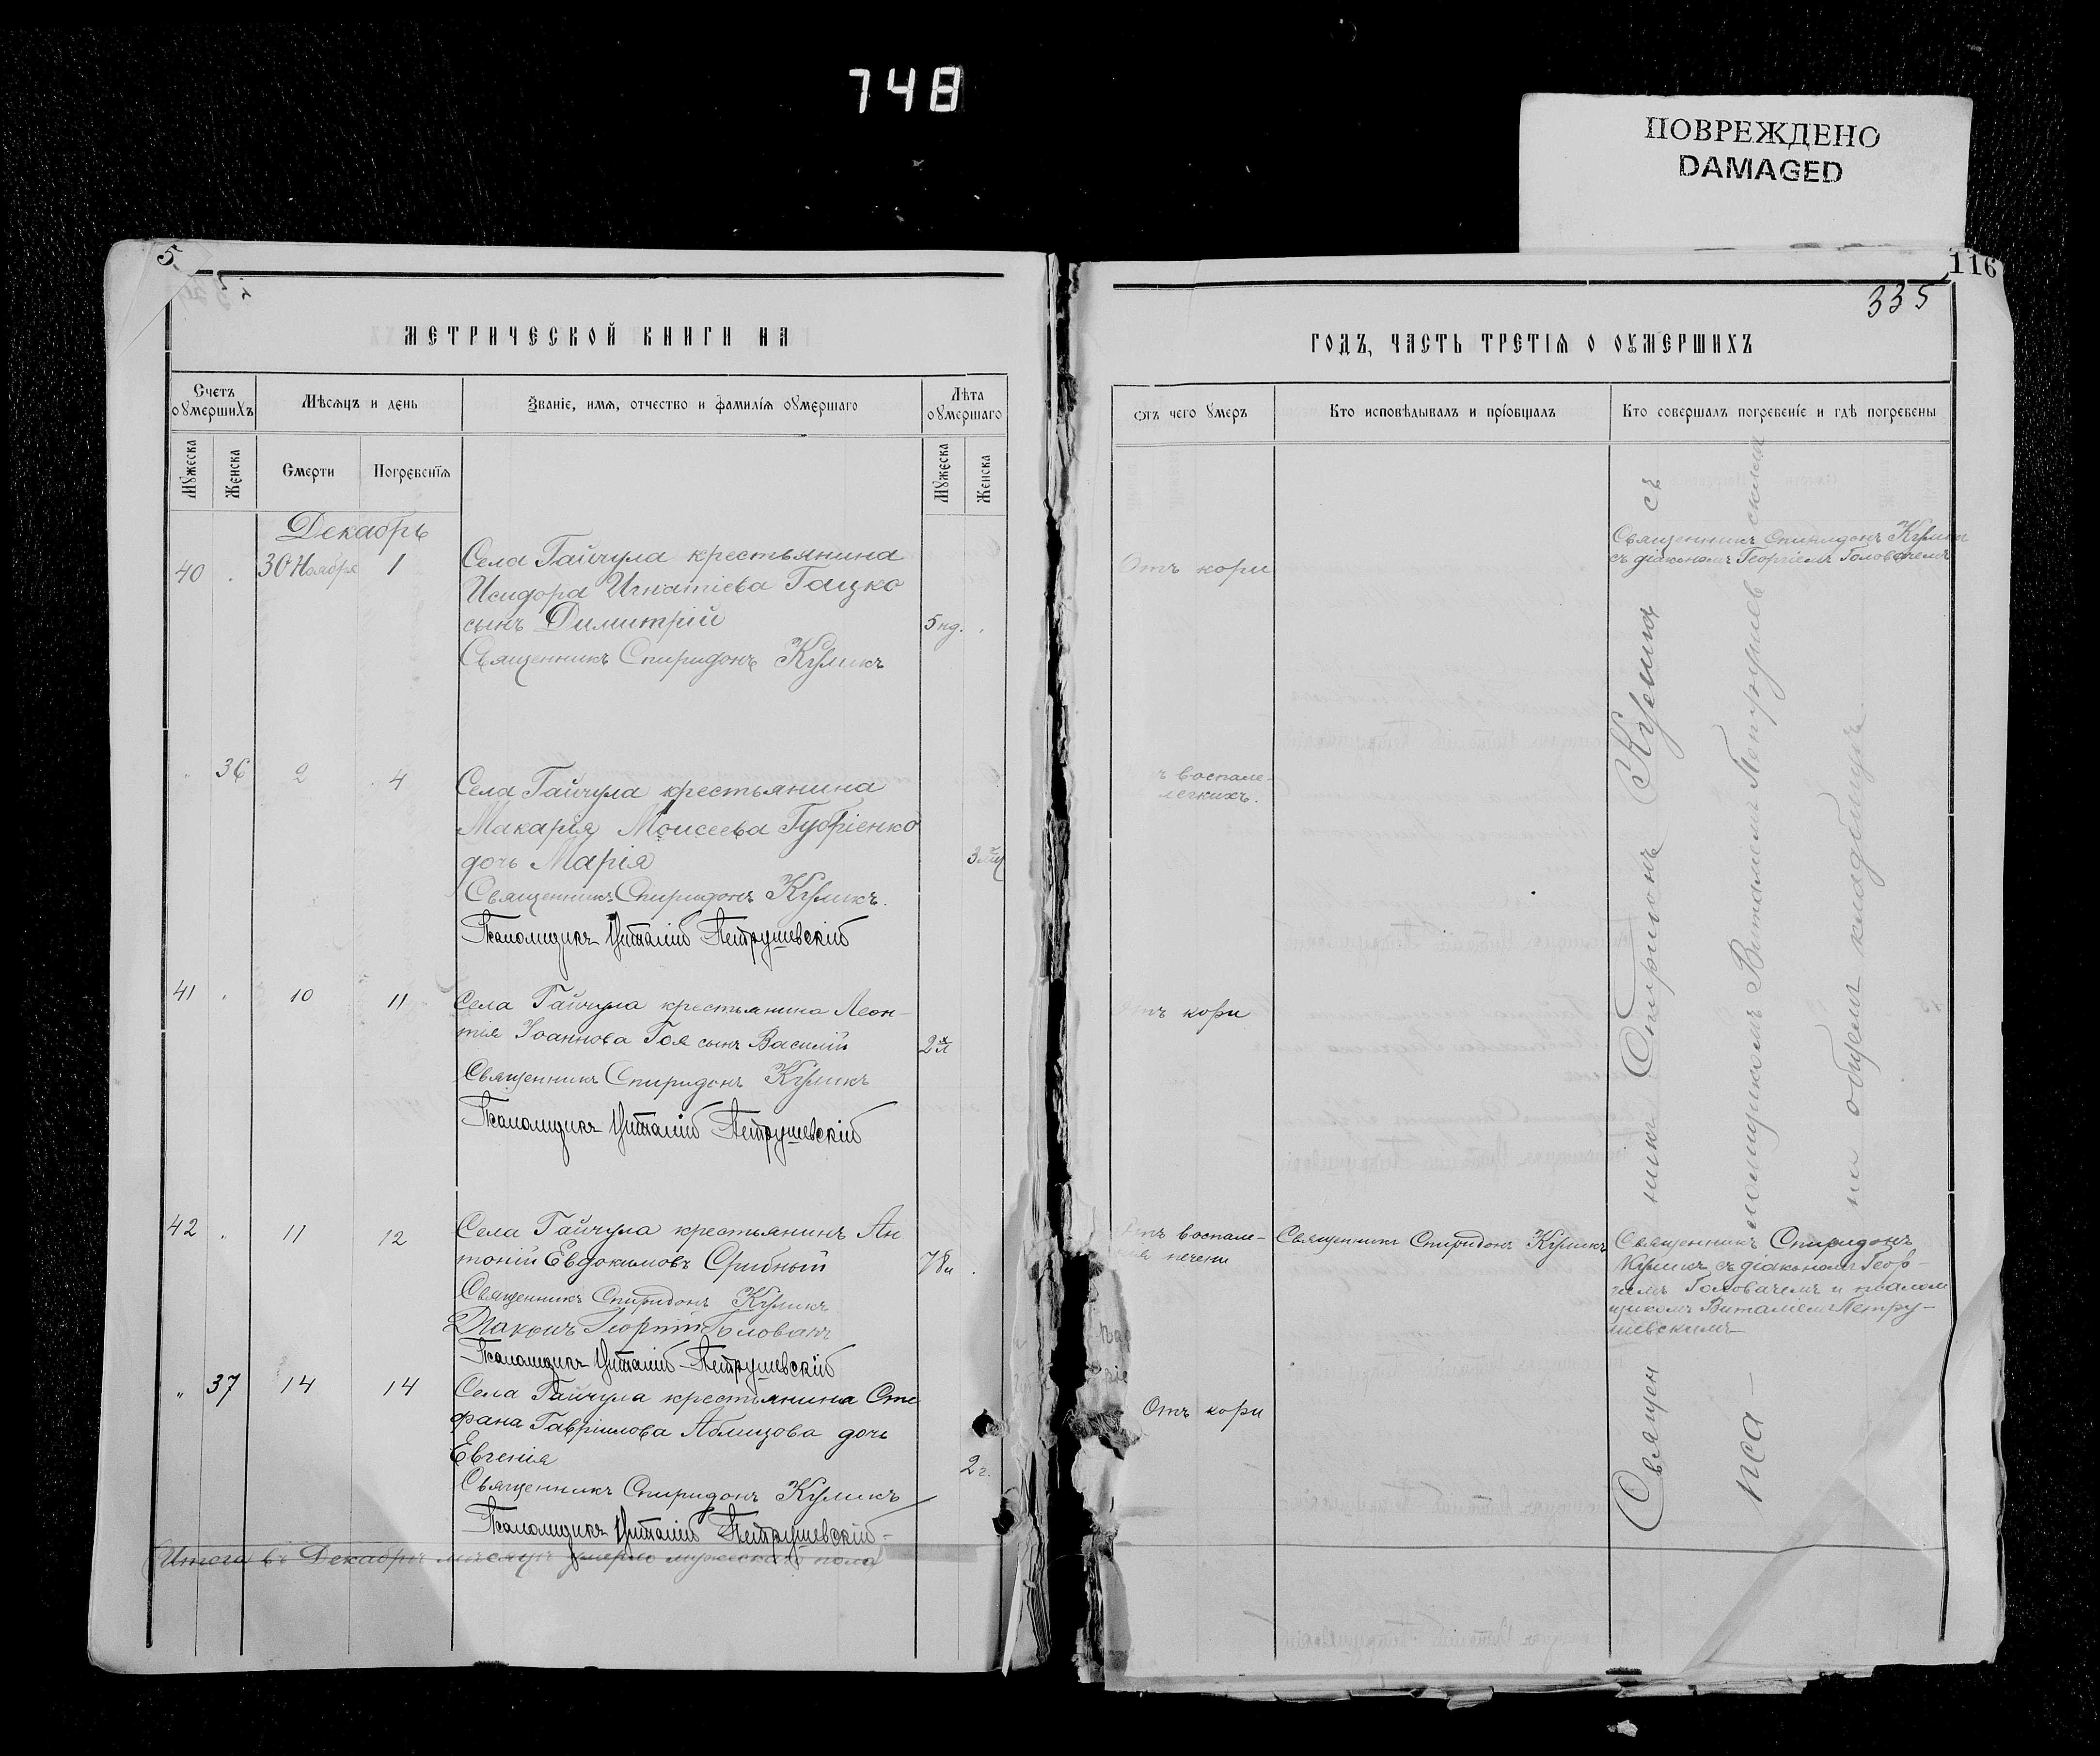 748
ПОВРЕЖДЕНО
DAMAGED
5
116
335
МЕТРИЧЕСКОЙ КНИГИ НА
ГОДЪ, ЧАСТЬ ТРЕТІѦ О ОУМЕРШИХЪ
Счетъ оумершихъ
Мѣсяцъ и день
Званіе, имя, отчество и фамилія оумершаго
Лѣта оумершаго
Мужеска
Женска
Смерти
Погребенія
Мужеска
Женска
Отъ чего умеръ
Кто исповѣдывалъ и пріобщалъ
Кто совершалъ погребеніе и гдѣ погребены
Декабрь
40 30 Ноября 1
Села Гайчула крестьянина
Исидора Игнатіева Гацко
сынъ Димитрій
5 нд.
Священникъ Спиридонъ Куликъ
Отъ кори
Священникъ Спиридонъ Куликъ
съ діакономъ Георгіемъ Головачемъ
36 2 4
Села Гайчула крестьянина
Макарія Моисеева Губріенко
дочь Марія
Священникъ Спиридонъ Куликъ.
Псаломщикъ Виталій Петрушевскій
воспале-
легкихъ.
41 10 11
Села Гайчула крестьянина Леон-
тія Іоаннова Гоя сынъ Василій
Священникъ Спиридонъ Куликъ
Псаломщикъ Виталій Петрушевскій
Отъ кори
42 11 12
Села Гайчула крестьянинъ Ан
тоній Евдокимовъ
Священникъ Спиридонъ Куликъ
Діаконъ Георгій Головачъ
Псаломщикъ Виталій Петрушевскій
Отъ воспале-
нія печени
Священникъ Спиридонъ Куликъ
Священникъ Спиридонъ
Куликъ съ діакономъ Геор-
гіемъ Головачемъ и псалом
щикомъ Виталіемъ Петру-
шевскимъ
" 37 14 14
Села Гайчула крестьянина Сте
фана Гавріилова Аблицова дочь
Евгенія
2 г.
Священникъ Спиридонъ Куликъ
Псаломщикъ Виталій Петрушевскій
Отъ кори
Итого въ Декабрѣ мѣсяцѣ умерло мужескаго пола
Священникъ Спиридонъ Куликъ съ
пса-ломщикомъ Виталіемъ Петрушевскимъ
на общемъ кладбищѣ